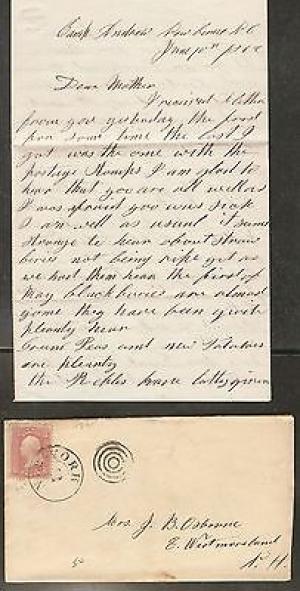 Camp Andrew New Berne N C
June 10th
Dear Mother
I received a letter
from you yesterday the first
for some time the last I
got was the one with the
postage stamps I am glad to
hear that you are all well as
I was afraid you was sick
I am well as usual it seems
strange to hear about straw
beries not being ripe yet as
we had them hear the first of
May blackberies are almost
gone they have been quite
pleanty hear
Green Peas and new Potatoes
are pleanty
the Rebles have
YORK
Mrs. J. B. Osborne
E. Westmoreland
N. H.